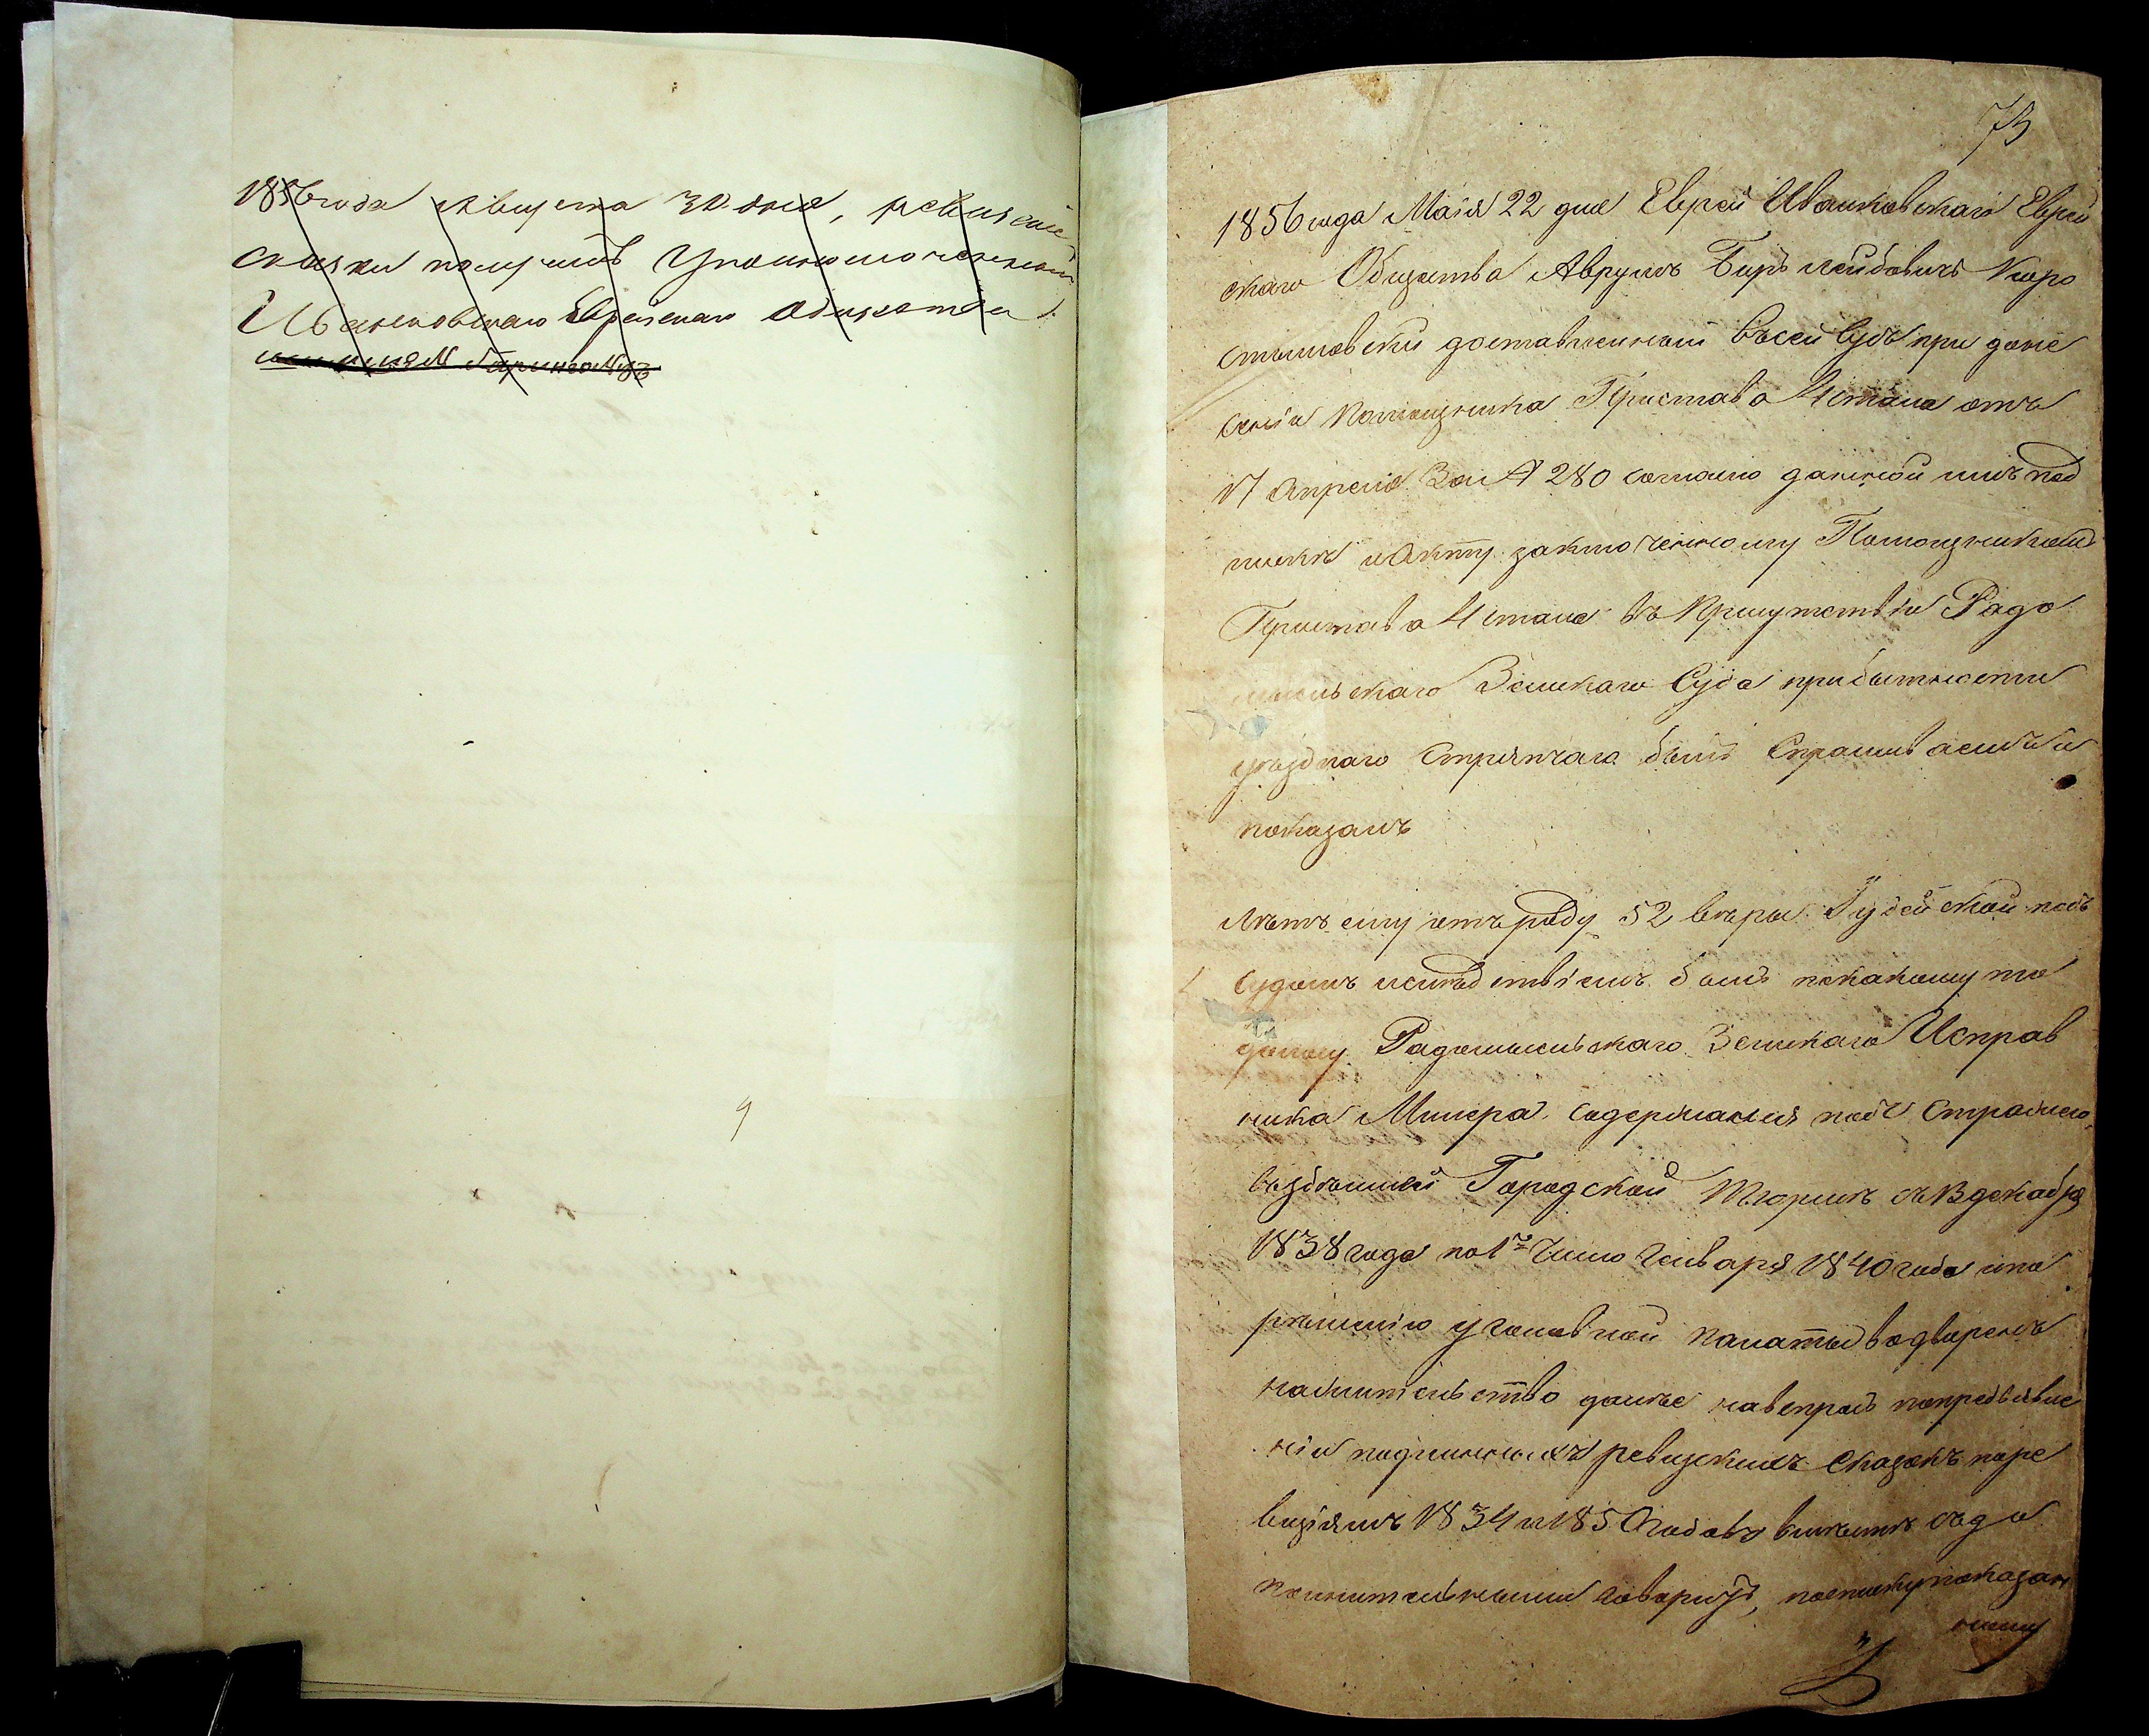 1856 года Августа 30 дня, ревизскіе
сказки получилъ Уполномоченный
Иванковскаго Еврейскаго Общества
73
1856 года Маія 22 дня Еврей Иванковскаго Еврей
скаго Общества Аврумъ Беръ Лейбовичъ Коро
стышовскій доставленный въ сей Судъ при доне
сеніи Помощника Пристава 4 стана отъ
17 Апреля За № 280 согласно данной имъ под
пискѣ и Акту заключенному Помощникомъ
Пристава 4 стана въ Присутствіи Радо
мысльскаго Земскаго Суда прибытности
уѣзднаго Стряпчаго былъ Спрашиваемъ и
показалъ
Лѣтъ ему отъ роду 52 вѣры Іудейской подъ
Судомъ и слѣдствіемъ былъ по какому то
доносу Радомысльскаго Земскаго Исправ
ника Миллера. содержался подъ Стражею
въ здѣшней Городской Тюрьмѣ съ 13 декабря
1838 года по 1е Число Января 1840 года и по
рѣшенію уголовной палаты водворенъ
на жительство далѣе на вопросъ по предъявле
ніи подлинныхъ ревизскихъ Сказокъ по ре
визіямъ 1834 и 1850 годовъ вмѣстѣ съ до
полнительными говоритъ, поелику показан
ному